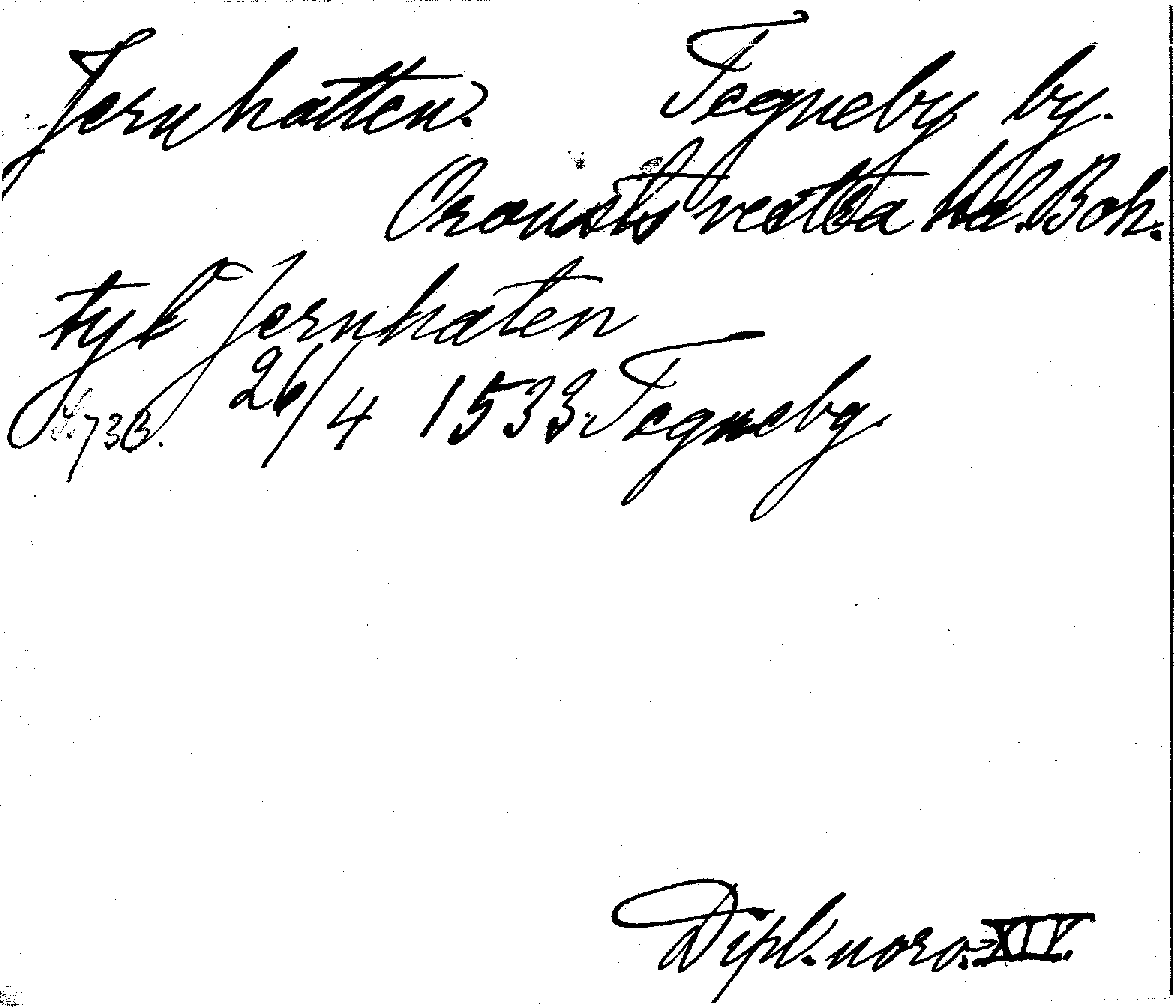 Jernhatten. Tegneby by.
Orousts vestra hd. Boh.
tyk Jernhaten
S. 73B. 26/4 1533. Tegneby.
Dipl. norv. XIV.